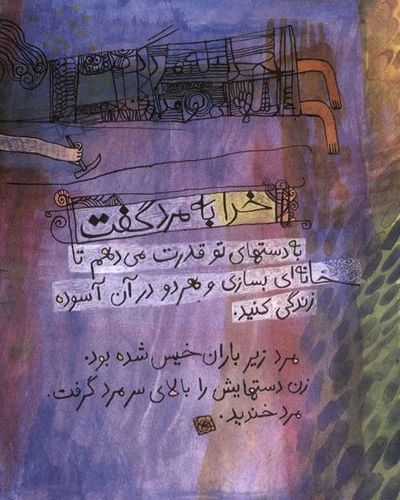 خدا به مرد گفت
به دستهای تو قدرت می‌دهم تا
خانه‌ای بسازی و هر دو در آن آسوده
زندگی کنید.
مرد زیر باران خیس شده بود.
زن دستهایش را بالای سر مرد گرفت.
مرد خندید.